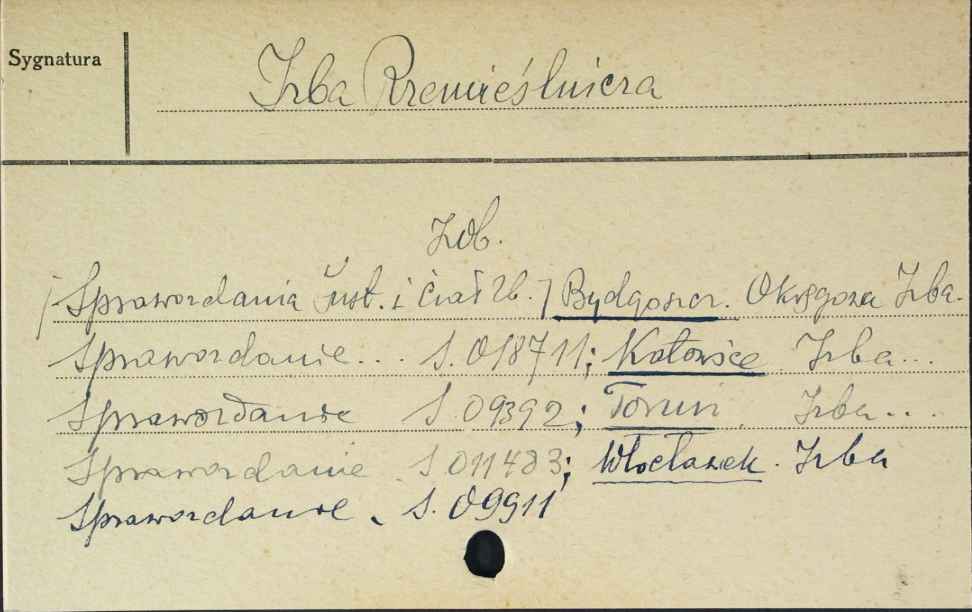 Sygnatura
Izba Rzemieślnicza
Zob.
/Sprawozdania inst. i ciał zb./ Bydgoszcz. Okręgowa Izba.
Sprawozdanie... S.018711; Katowice. Izba...
Sprawozdanie S.09392; Toruń. Izba...
Sprawozdanie. S 011483; Włocławek. Izba
Sprawozdanie. S. 09911